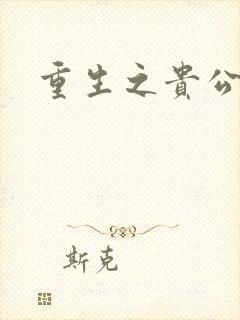 重生之貴公
斯克